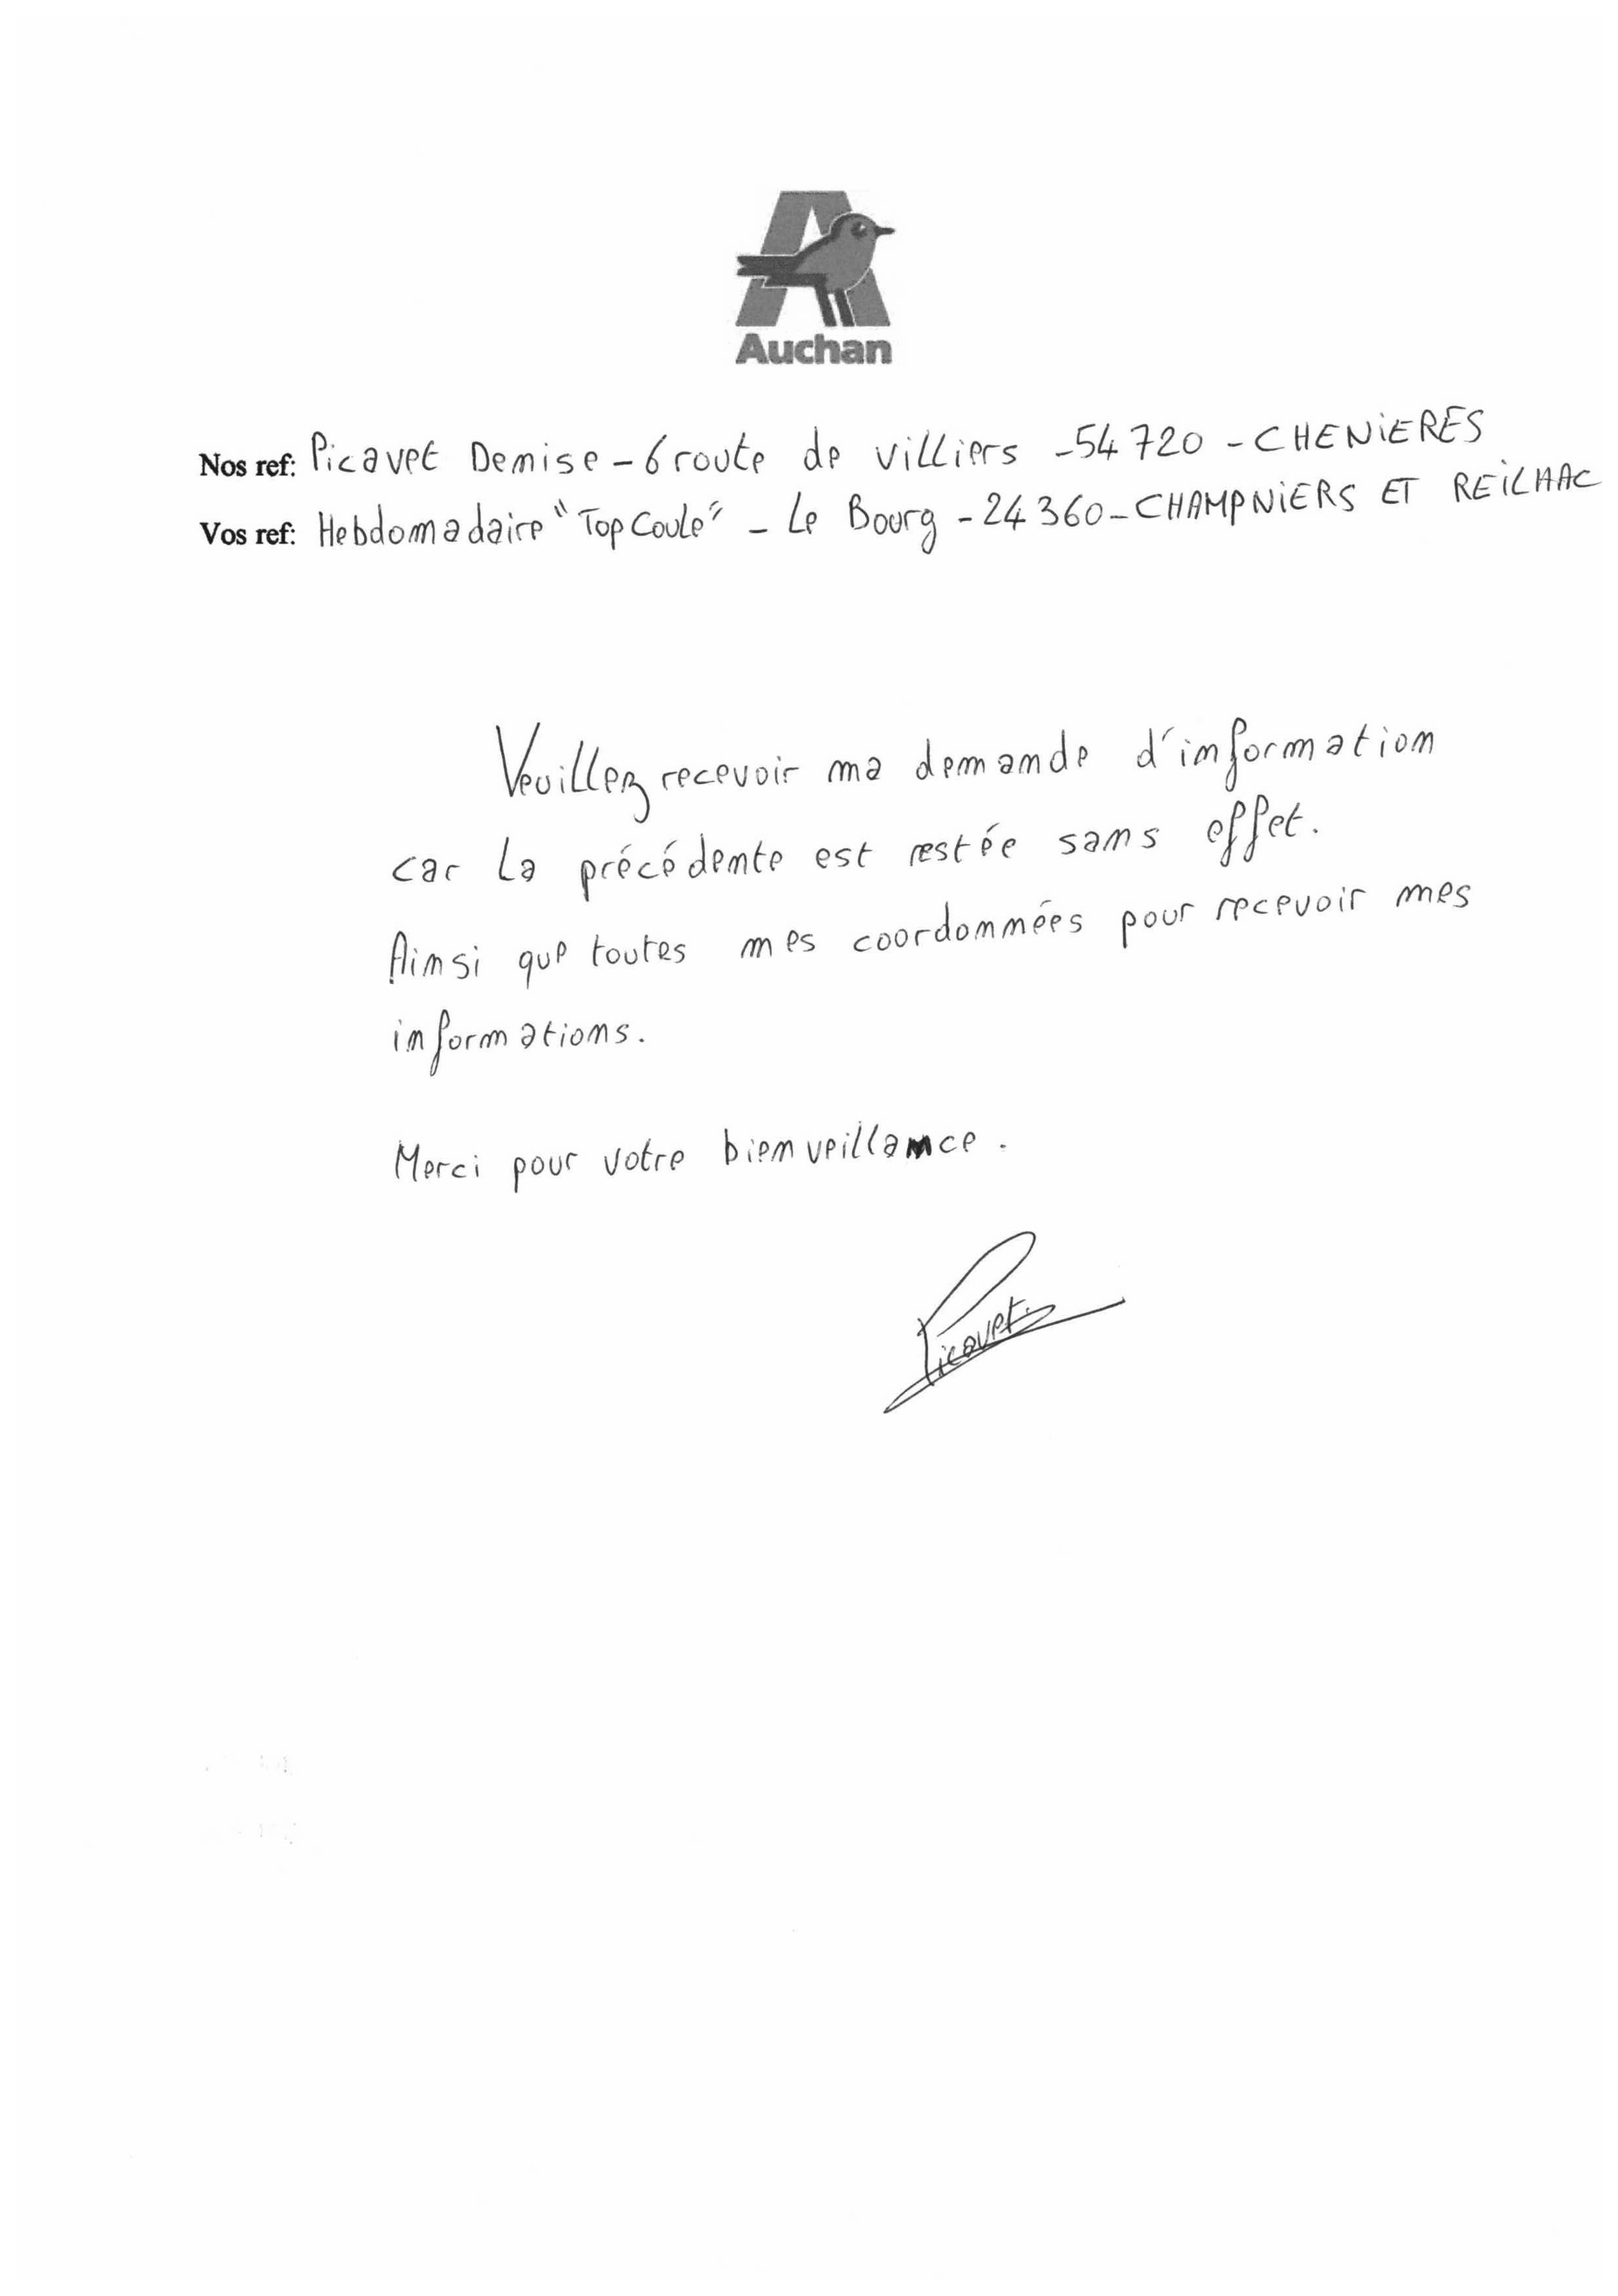 Auchan
Nos ref: Picavet Denise - 6 route de villiers - 54 720 - CHENIERES
Vos ref: Hebdomadaire "Top Coule" - Le Bourg - 24 360 - CHAMPNIERS ET REILHAC
Veuillez recevoir ma demande d'information
car la précédente est restée sans effet.
Ainsi que toutes mes coordonnées pour recevoir mes
informations.
Merci pour votre bienveillance.
Picavet